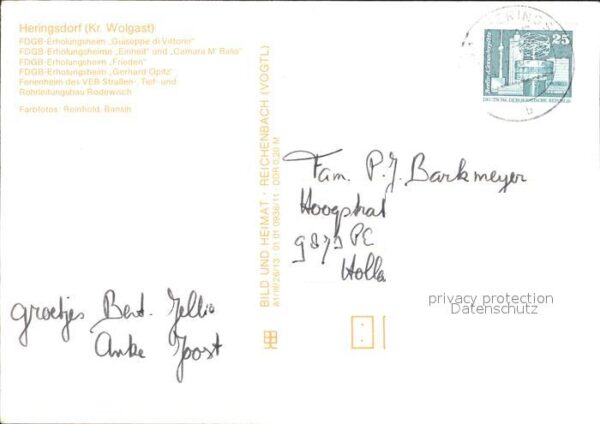 Heringsdorf (Kr. Wolgast)
FDGB-Erholungsheim „Guiseppe di Vittorio"
FDGB-Erholungsheime „Einheit" und „Camara M' Balia"
FDGB-Erholungsheim „Frieden"
FDGB-Erholungsheim „Gerhard Opitz"
Ferienheim des VEB Straßen-, Tief- und
Rohrleitungsbau Rodewisch
Farbfotos: Reinhold, Bansin
BILD UND HEIMAT · REICHENBACH (VOGTL)
A1/III/26/13 01 01 0936/11 DDR 0,20 M
25
DEUTSCHE DEMOKRATISCHE REPUBLIK
Fam. P.J. Barkmeyer
Hoogstraat
PE
groetjes Bert. Jellie
Anke Joost
privacy protection
Datenschutz